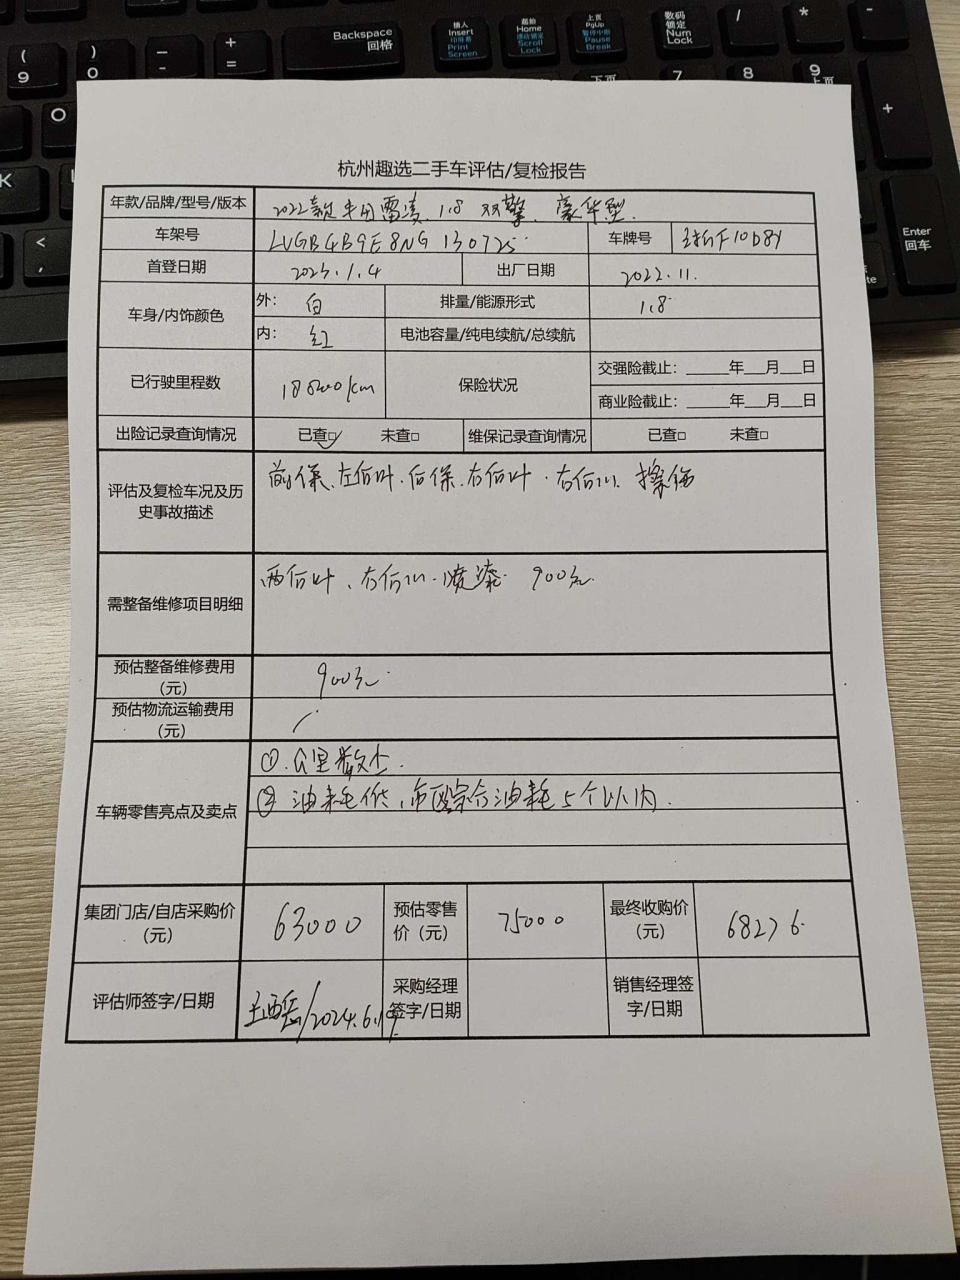 Backspace 回格
插入 Insert 印屏幕 Print Screen
起始 Home 滚动锁定 Scroll Lock
上页 PgUp 暂停中断 Pause Break
数码锁定 Num Lock
/
*
-
( 9
) 0
— -
+ =
下页
7
8
9 上页
+
O
K
< ,
Enter 回车
杭州趣选二手车评估/复检报告
年款/品牌/型号/版本 2022款丰田雷凌 1.8 双擎 豪华型
车架号 LVGB4B9E8NG130725 车牌号
首登日期 2023.1.4 出厂日期 2022.11.
车身/内饰颜色 外: 白 排量/能源形式 1.8
内: 红 电池容量/纯电续航/总续航
已行驶里程数 保险状况 交强险截止: ______年___月___日
商业险截止: ______年___月___日
出险记录查询情况 已查□✓ 未查□ 维保记录查询情况 已查□ 未查□
评估及复检车况及历史事故描述 前保、左后叶、后保、右后叶、右后门、擦伤
需整备维修项目明细 两后叶、右后门、喷漆 900元
预估整备维修费用(元) 900元
预估物流运输费用(元) /
车辆零售亮点及卖点 ①.公里数少.
② 油耗低,市区综合油耗5个以内.
集团门店/自店采购价(元) 63000 预估零售价(元) 75000 最终收购价(元) 68276
评估师签字/日期 /2024.6.19 采购经理签字/日期 销售经理签字/日期